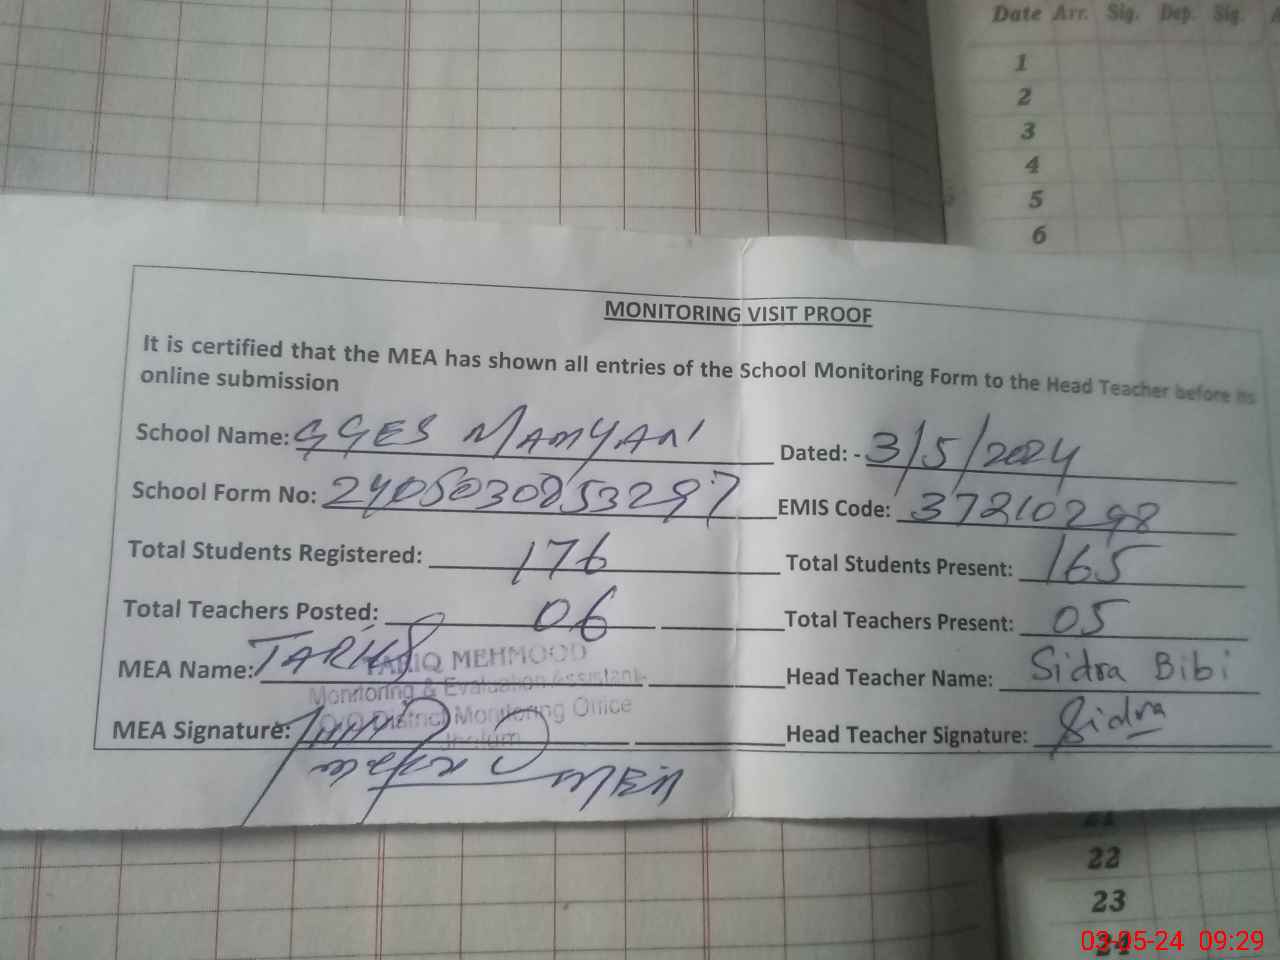 Date Arr. Sig. Dep. Sig.
1
2
3
4
5
6
MONITORING VISIT PROOF
It is certified that the MEA has shown all entries of the School Monitoring Form to the Head Teacher before its
online submission
School Name: GGES MAMYAN Dated: - 3/5/2024
School Form No: 2405030853297 EMIS Code: 37210298
Total Students Registered: 176 Total Students Present: 165
Total Teachers Posted: 06 Total Teachers Present: 05
MEA Name: TARIQ Head Teacher Name: Sidra Bibi
TARIQ MEHMOOD
Monitoring & Evaluation Assistant
O/O District Monitoring Office
Jhelum
MEA Signature: Head Teacher Signature: Sidra
21
22
23
24
03-05-24 09:29